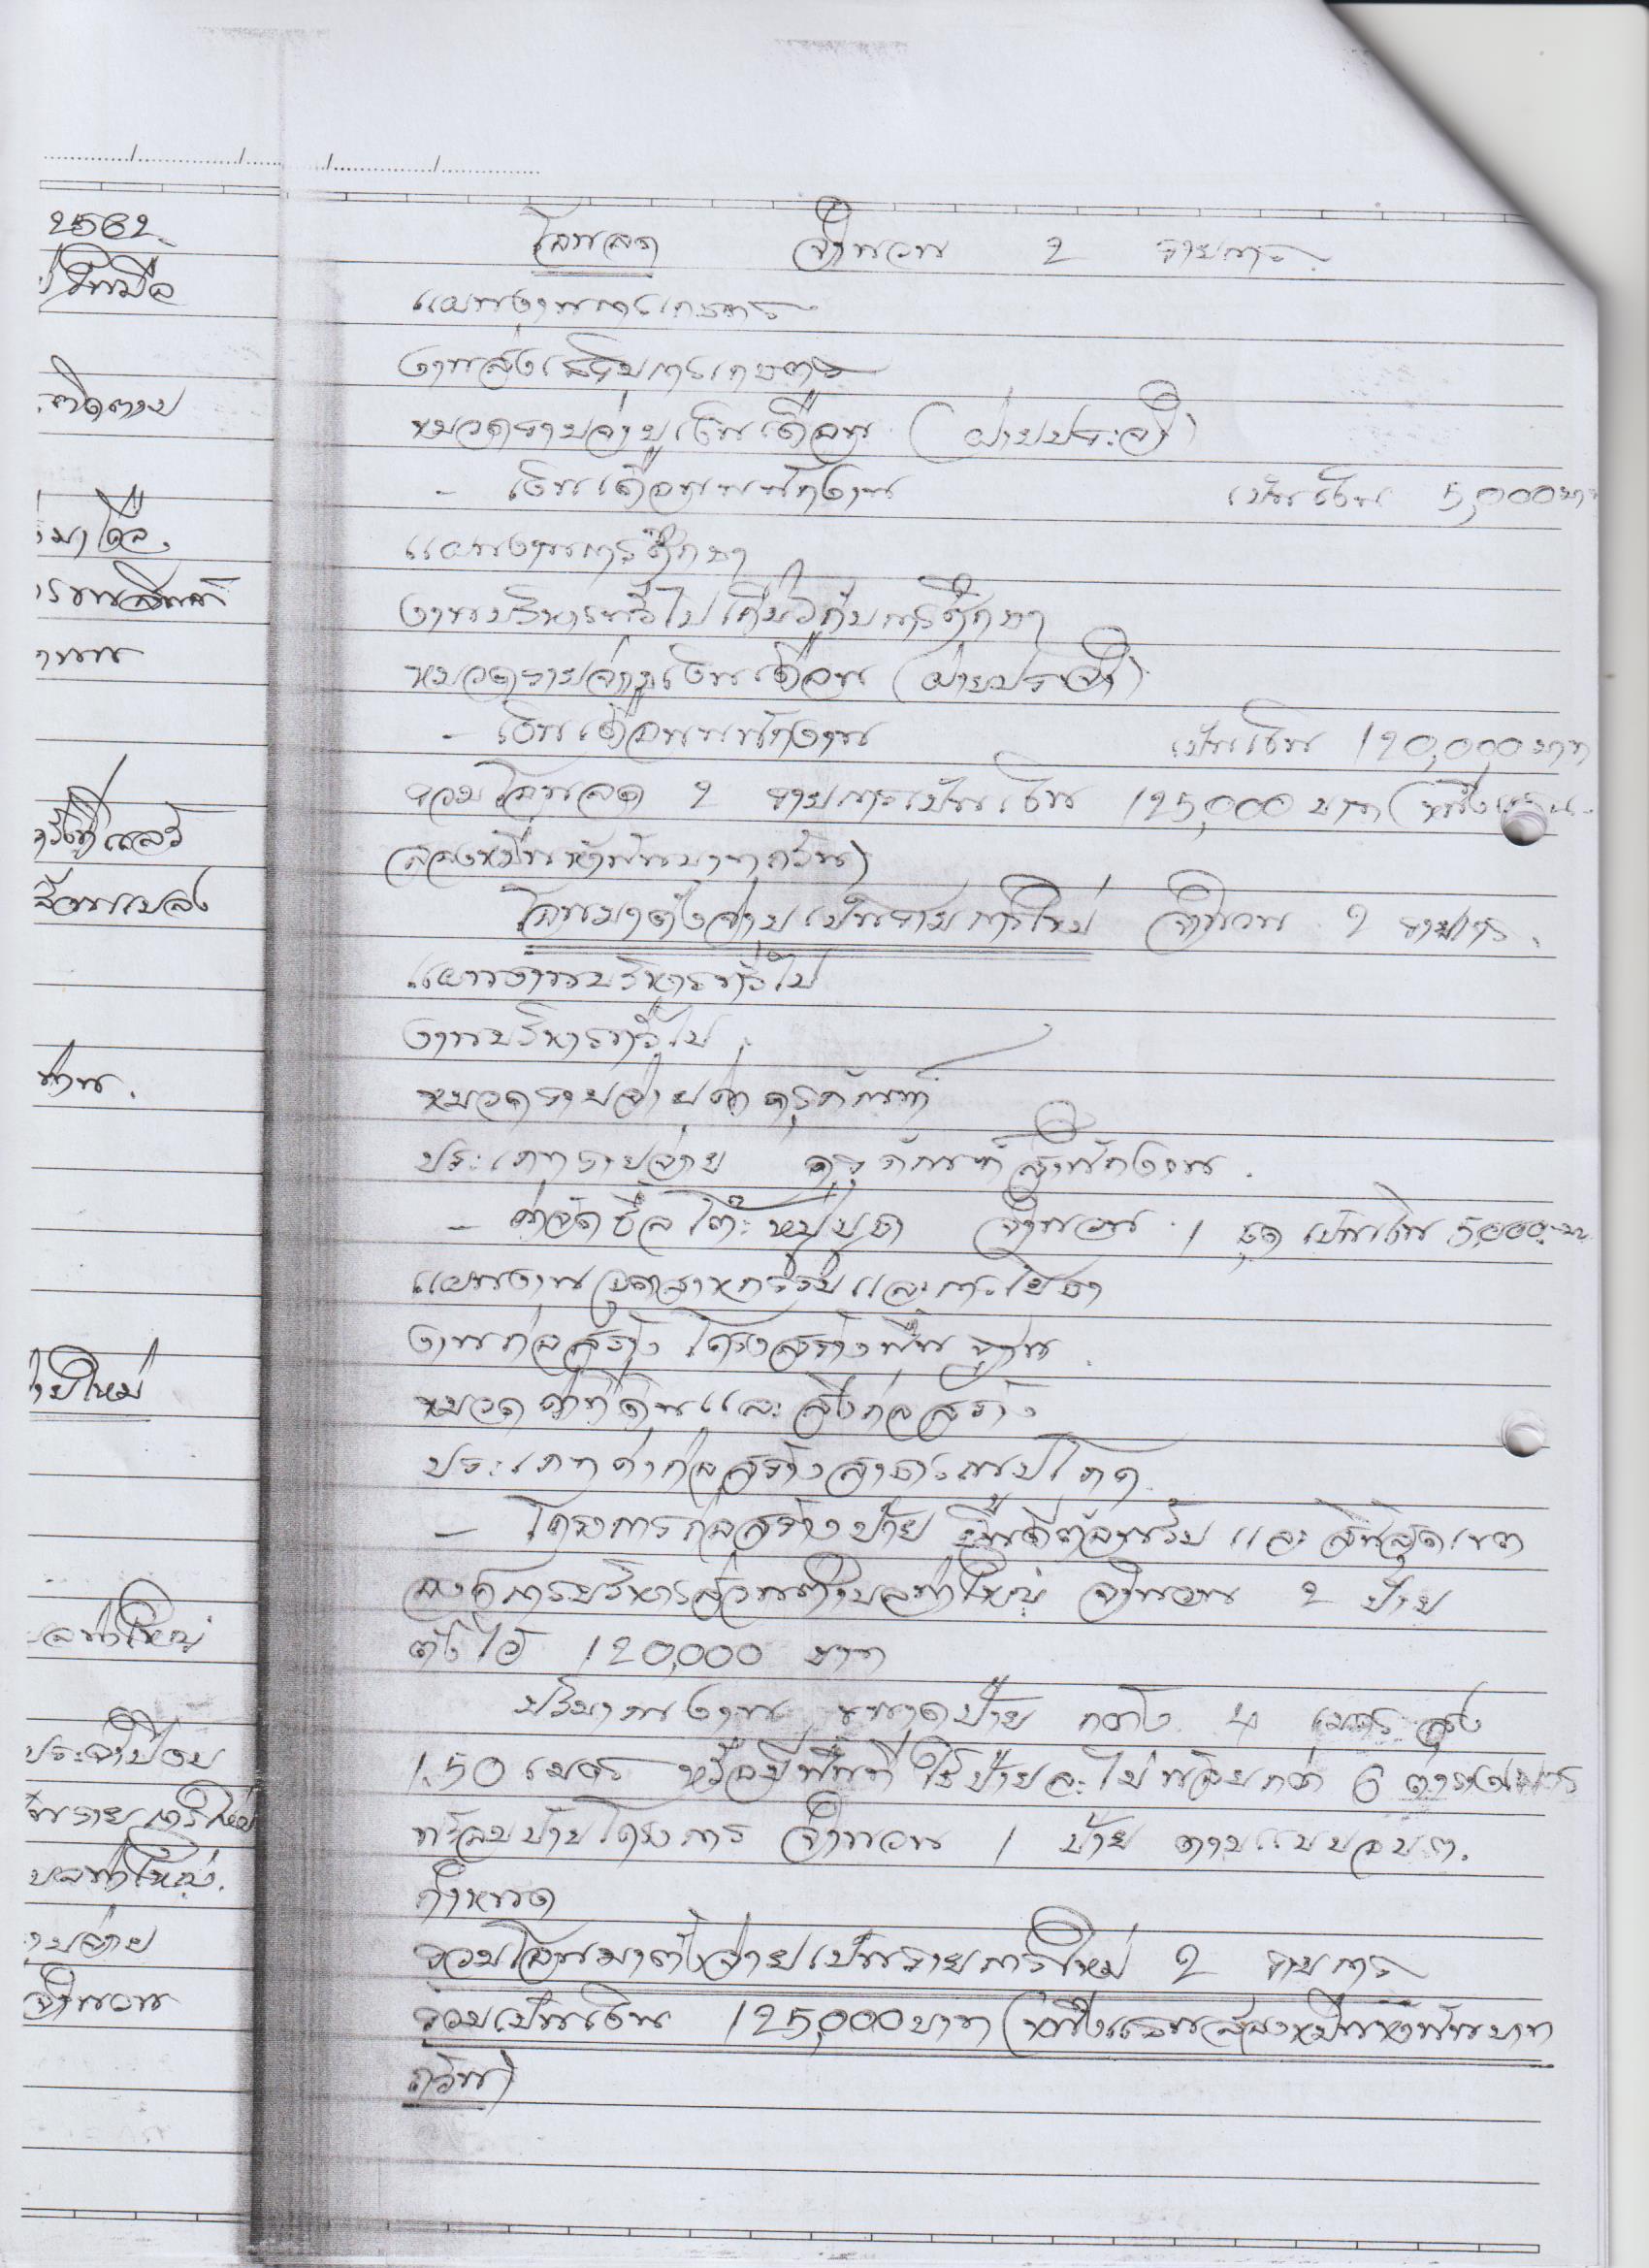 2562
โอนลด จำนวน 2 รายการ
แผนงานการเกษตร
งานส่งเสริมการเกษตร
ติดตาม
หมวดรายจ่าย เงินเดือน (ฝ่ายประจำ)
- เงินเดือนพนักงาน เป็นเงิน 5,000 บาท
แผนงานการศึกษา
งานบริหารทั่วไปเกี่ยวกับการศึกษา
หมวดรายจ่าย เงินเดือน (ฝ่ายประจำ)
- เงินเดือนพนักงาน เป็นเงิน 120,000 บาท
รวมโอนลด 2 รายการเป็นเงิน 125,000 บาท (หนึ่งแสน
สองหมื่นห้าพันบาทถ้วน)
โอนมาตั้งจ่ายเป็นรายการใหม่ จำนวน 2 รายการ
แผนงานบริหารทั่วไป
งานบริหารทั่วไป
ท่าน
หมวดรายจ่ายค่าครุภัณฑ์
ประเภทรายจ่าย ครุภัณฑ์สำนักงาน
- ค่าจัดซื้อโต๊ะหมู่บูชา จำนวน 1 ชุด เป็นเงิน 5,000 บาท
แผนงานอุตสาหกรรมและการโยธา
งานก่อสร้างโครงสร้างพื้นฐาน
ใหม่
หมวดค่าที่ดินและสิ่งก่อสร้าง
ประเภทค่าก่อสร้างสาธารณูปโภค
- โครงการก่อสร้างป้าย ยินดีต้อนรับ และ สิ้นสุดเขต
องค์การบริหารส่วนตำบลท่าใหญ่ จำนวน 2 ป้าย
ลท่าใหญ่
ตั้งไว้ 120,000 บาท
ปริมาณงาน ขนาดป้าย กว้าง 4 เมตร สูง
1.50 เมตร หรือมีพื้นที่ใช้ป้ายละไม่น้อยกว่า 6 ตารางเมตร
พร้อมป้ายโครงการ จำนวน 1 ป้าย ตามแบบ อบต.
บลท่าใหญ่
กำหนด
รวมโอนมาตั้งจ่ายเป็นรายการใหม่ 2 รายการ
จำนวน
รวมเป็นเงิน 125,000 บาท (หนึ่งแสนสองหมื่นห้าพันบาท
ถ้วน)